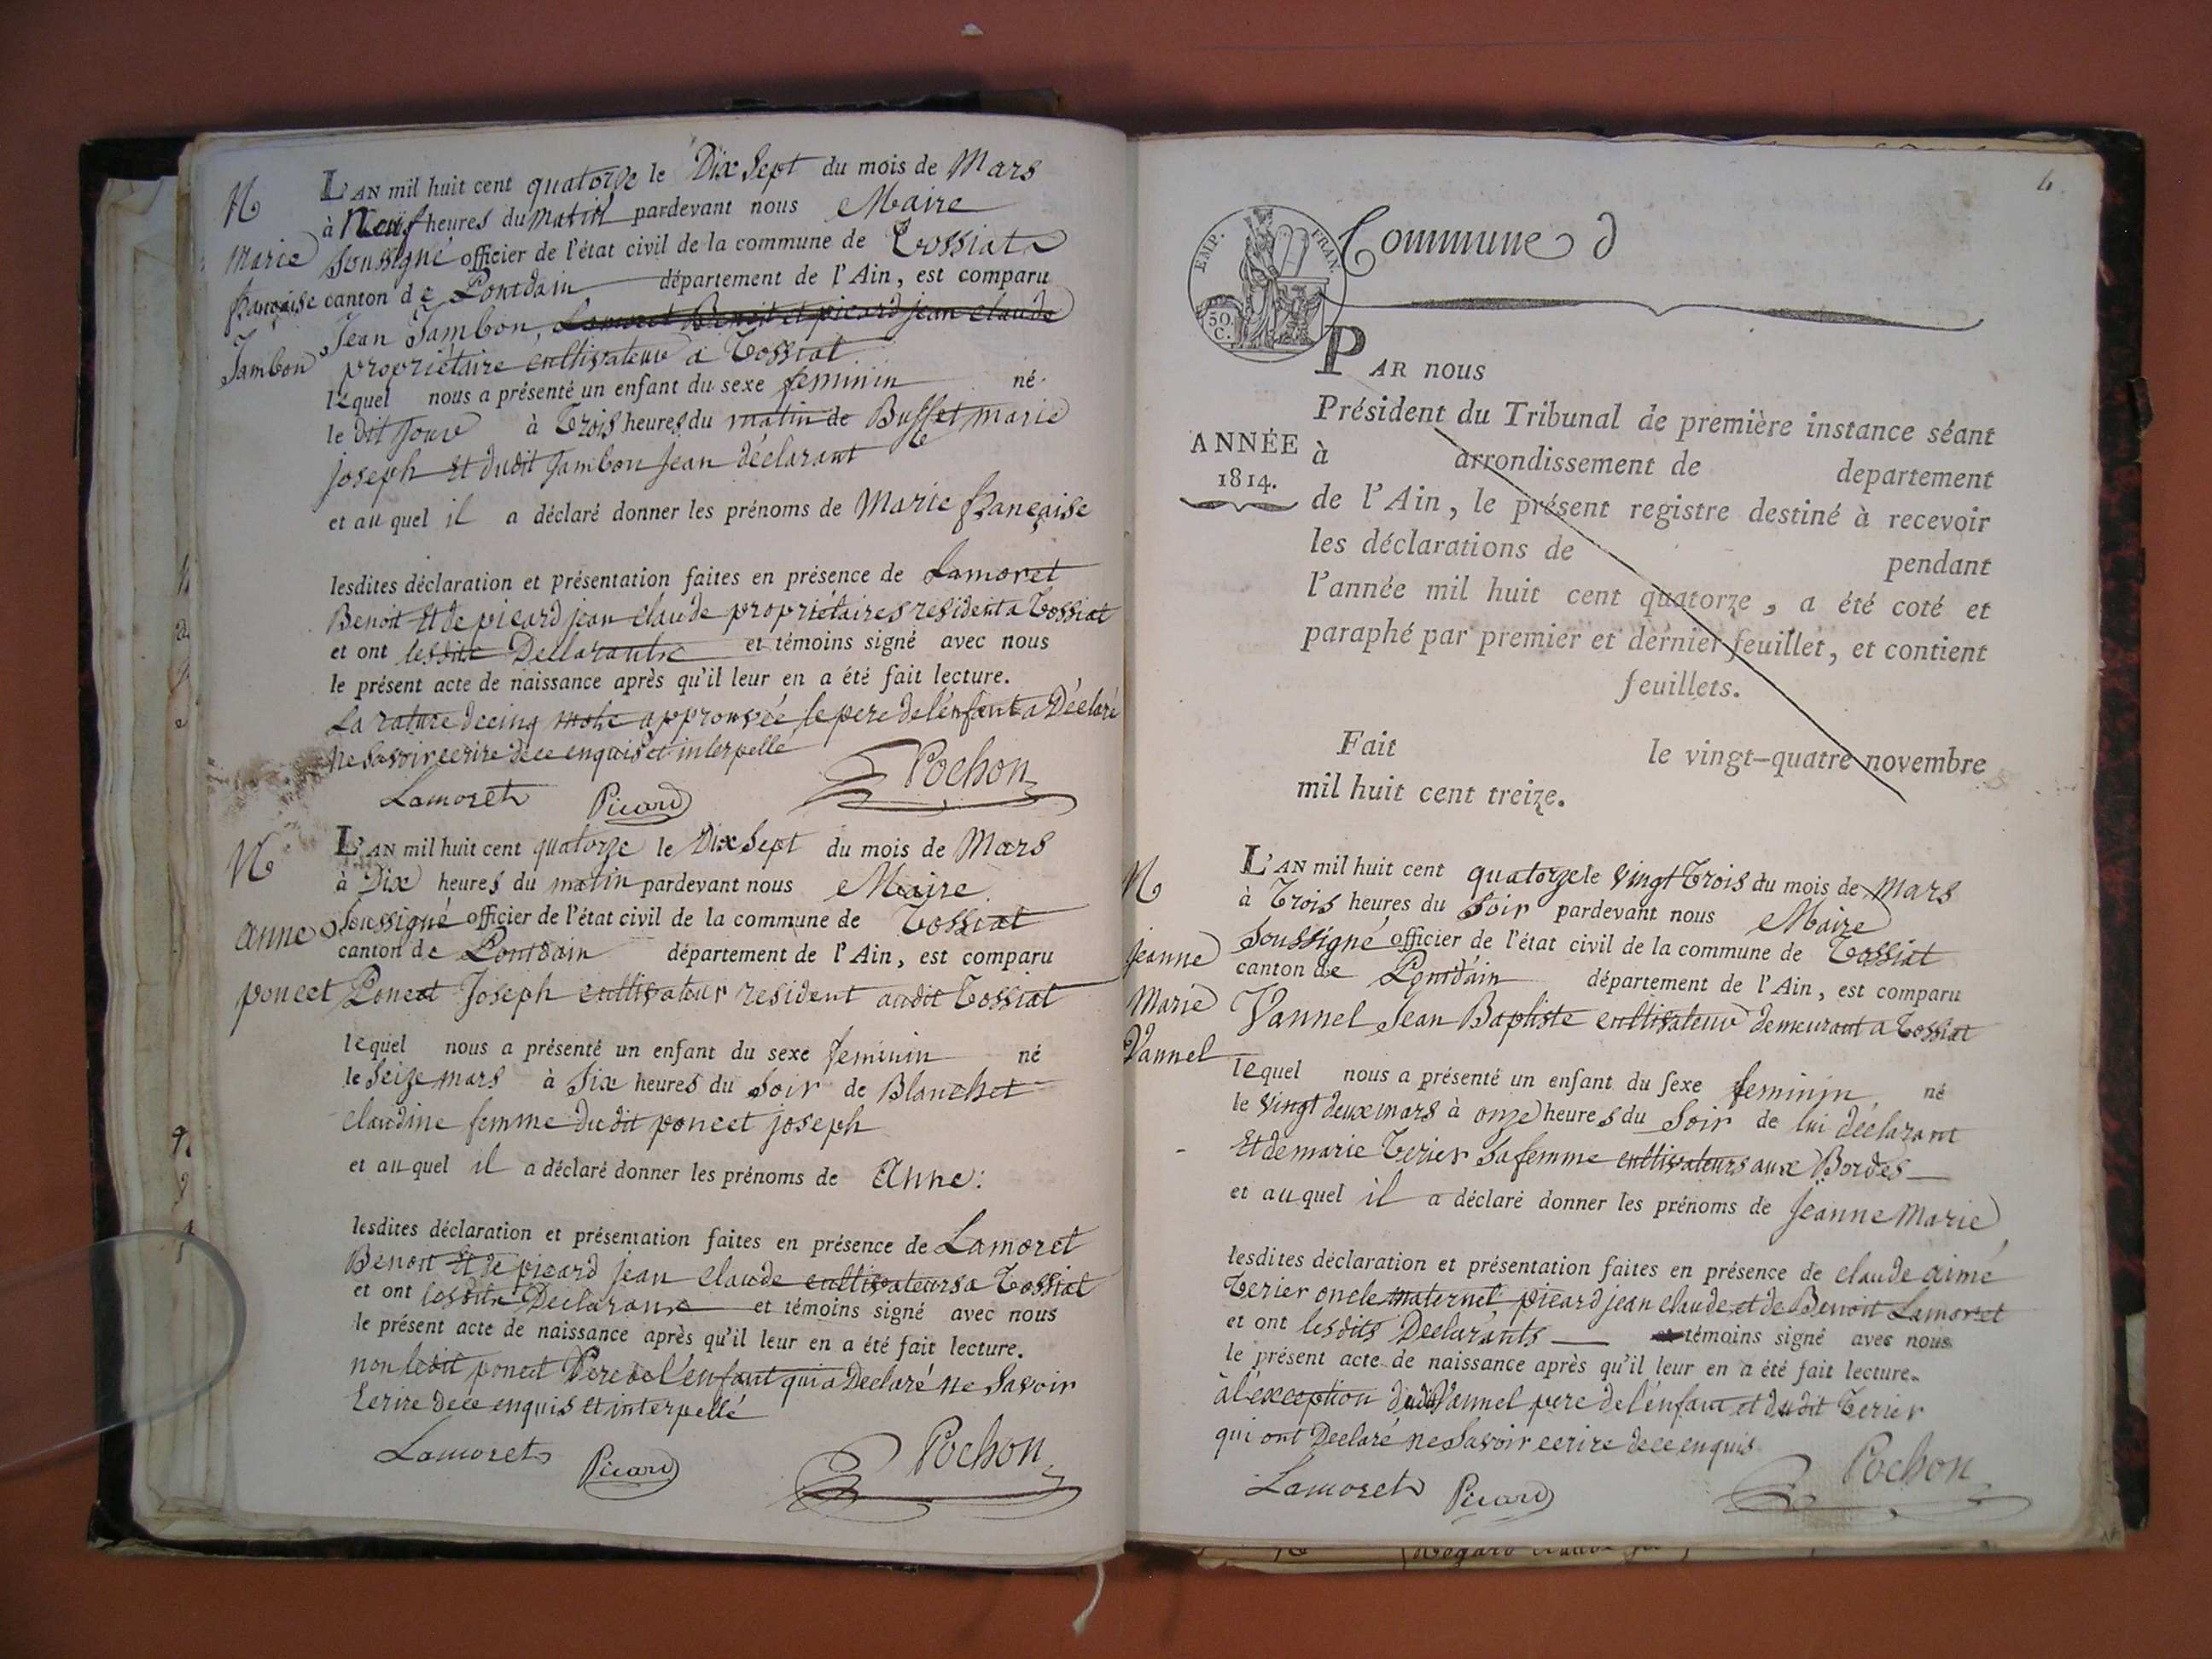 N
Marie
française
Jambon
L'AN mil huit cent quatorze le Dix Sept du mois de Mars
à Neuf heures du matin pardevant nous Maire
Soussigné officier de l'état civil de la commune de Tossiat
canton de Pontdain département de l'Ain, est comparu
Jean Jambon, Lamoret Benoit et picard jean claude
propriétaire cultivateur a Tossiat
lequel nous a présenté un enfant du sexe feminin né
le dit jour à Trois heures du matin de Buffet marie
joseph Et dudit Jambon Jean déclarant
et auquel il a déclaré donner les prénoms de Marie française
lesdites déclaration et présentation faites en présence de Lamoret
Benoit Et de picard jean claude propriétaires resident a Tossiat
et ont lesdits Declarants et témoins signé avec nous
le présent acte de naissance après qu'il leur en a été fait lecture.
La rature de cinq mots approuvée, le pere de l'enfant a Déclaré
ne Savoir ecrire de ce enquis et interpellé
Lamoret Picard Pochon
N
anne
poncet
L'AN mil huit cent quatorze le Dix Sept du mois de Mars
à Dix heures du matin pardevant nous Maire
Soussigné officier de l'état civil de la commune de Tossiat
canton de Pontdain département de l'Ain, est comparu
Poncet Joseph cultivateur resident audit Tossiat
lequel nous a présenté un enfant du sexe feminin né
le Seize mars à Six heures du Soir de Blanchet
claudine femme dudit poncet joseph
et auquel il a déclaré donner les prénoms de Anne:
lesdites déclaration et présentation faites en présence de Lamoret
Benoit Et de picard jean claude cultivateurs a Tossiat
et ont lesdits Declarans et témoins signé avec nous
le présent acte de naissance après qu'il leur en a été fait lecture.
non ledit poncet Pere de l'enfant qui a Declaré ne Savoir
Ecrire de ce enquis et interpellé
Lamoret Picard Pochon
4
EMP. FRAN.
50
C.
Commune d
PAR nous
Président du Tribunal de première instance séant
ANNÉE
1814.
à arrondissement de departement
de l'Ain, le présent registre destiné à recevoir
les déclarations de pendant
l'année mil huit cent quatorze, a été coté et
paraphé par premier et dernier feuillet, et contient
feuillets.
Fait le vingt-quatre novembre
mil huit cent treize.
N
Jeanne
Marie
Vannel
L'AN mil huit cent quatorze le vingt Trois du mois de Mars
à Trois heures du Soir pardevant nous Maire
Soussigné officier de l'état civil de la commune de Tossiat
canton de Pontdain département de l'Ain, est comparu
Vannel Jean Baptiste cultivateur demeurant a Tossiat
lequel nous a présenté un enfant du sexe feminin né
le vingt deux mars à onze heures du Soir de lui déclarant
Et de marie Terier Sa femme cultivateurs aux Bordes
et auquel il a déclaré donner les prénoms de Jeanne Marie
lesdites déclaration et présentation faites en présence de claude aimé
Terier oncle maternel picard jean claude et de Benoit Lamoret
et ont lesdits Declarants témoins signé avec nous
le présent acte de naissance après qu'il leur en a été fait lecture.
à l'exception dudit Vannel pere de l'enfant et dudit Terier
qui ont Declaré ne Savoir ecrire de ce enquis
Lamoret Picard Pochon